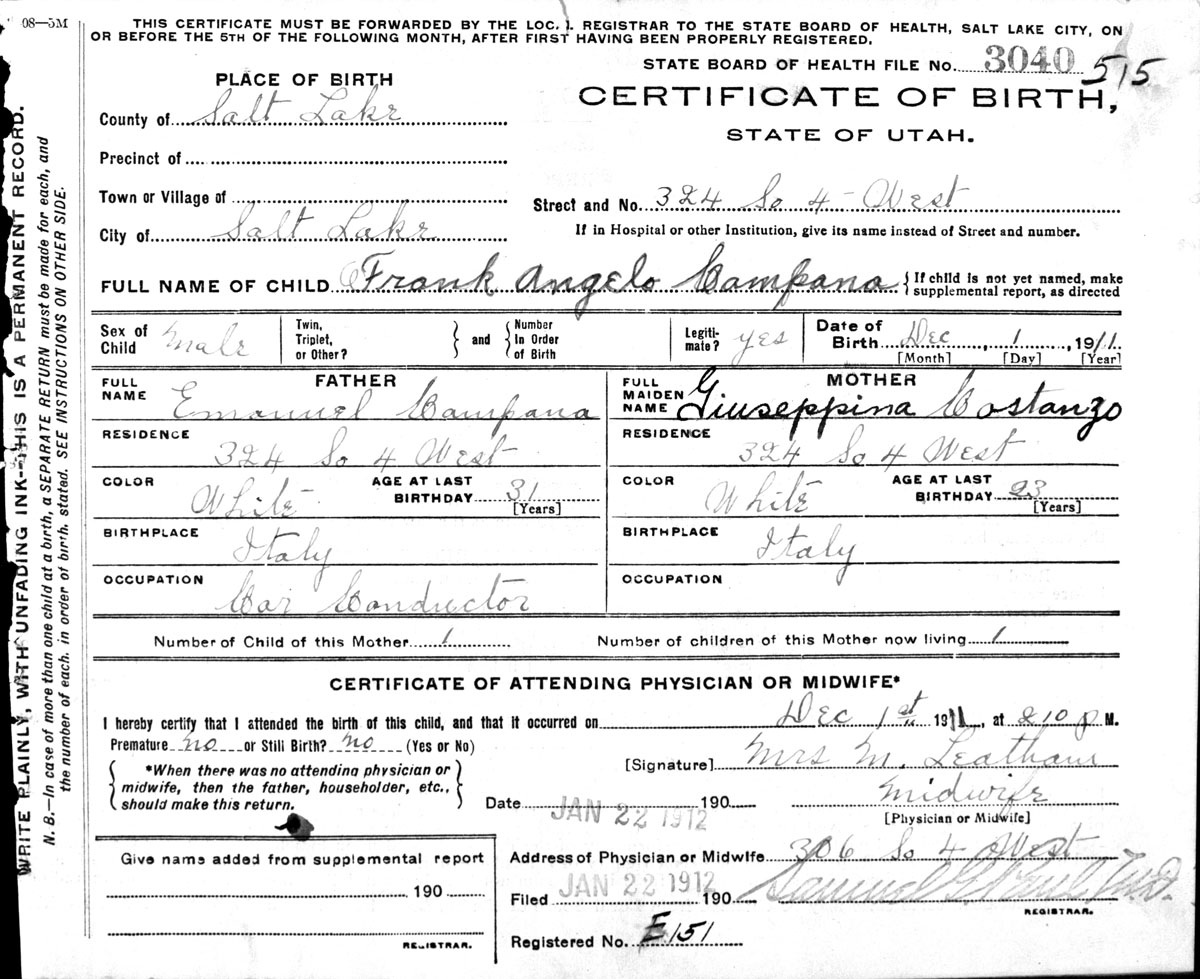 08—5M
THIS CERTIFICATE MUST BE FORWARDED BY THE LOC. L REGISTRAR TO THE STATE BOARD OF HEALTH, SALT LAKE CITY, ON
OR BEFORE THE 5TH OF THE FOLLOWING MONTH, AFTER FIRST HAVING BEEN PROPERLY REGISTERED.
STATE BOARD OF HEALTH FILE NO. 3040 515
PLACE OF BIRTH
CERTIFICATE OF BIRTH,
STATE OF UTAH.
County of Salt Lake
Precinct of
Town or Village of
Street and No. 324 So 4 West
City of Salt Lake
If in Hospital or other Institution, give its name instead of Street and number.
FULL NAME OF CHILD Frank Angelo Campana {If child is not yet named, make supplemental report, as directed
Sex of Child Male
Twin, Triplet, or Other?
and
Number In Order of Birth
Legitimate? yes
Date of Birth Dec, 1, 1911.
[Month] [Day] [Year]
FATHER
FULL NAME Emanuel Campana
RESIDENCE 324 So 4 West
COLOR White
AGE AT LAST BIRTHDAY 31
[Years]
BIRTHPLACE Italy
OCCUPATION Car Conductor
MOTHER
FULL MAIDEN NAME Giuseppina Costanzo
RESIDENCE 324 So 4 West
COLOR White
AGE AT LAST BIRTHDAY 23
[Years]
BIRTHPLACE Italy
OCCUPATION
Number of Child of this Mother 1
Number of children of this Mother now living 1
CERTIFICATE OF ATTENDING PHYSICIAN OR MIDWIFE*
I hereby certify that I attended the birth of this child, and that it occurred on Dec 1st 1911, at 210 p M.
Premature no or Still Birth? no (Yes or No)
[Signature] Mrs M. Leatham
*When there was no attending physician or
midwife, then the father, householder, etc.,
should make this return.
Midwife
[Physician or Midwife]
Date JAN 22 1912 190
Give name added from supplemental report
190
REGISTRAR.
Address of Physician or Midwife 306 So 4 West
Filed JAN 22 1912 190 Samuel G. Paul M.D.
REGISTRAR.
Registered No. E151
WRITE PLAINLY, WITH UNFADING INK—THIS IS A PERMANENT RECORD.
N. B.—In case of more than one child at a birth, a SEPARATE RETURN must be made for each, and
the number of each, in order of birth, stated. SEE INSTRUCTIONS ON OTHER SIDE.